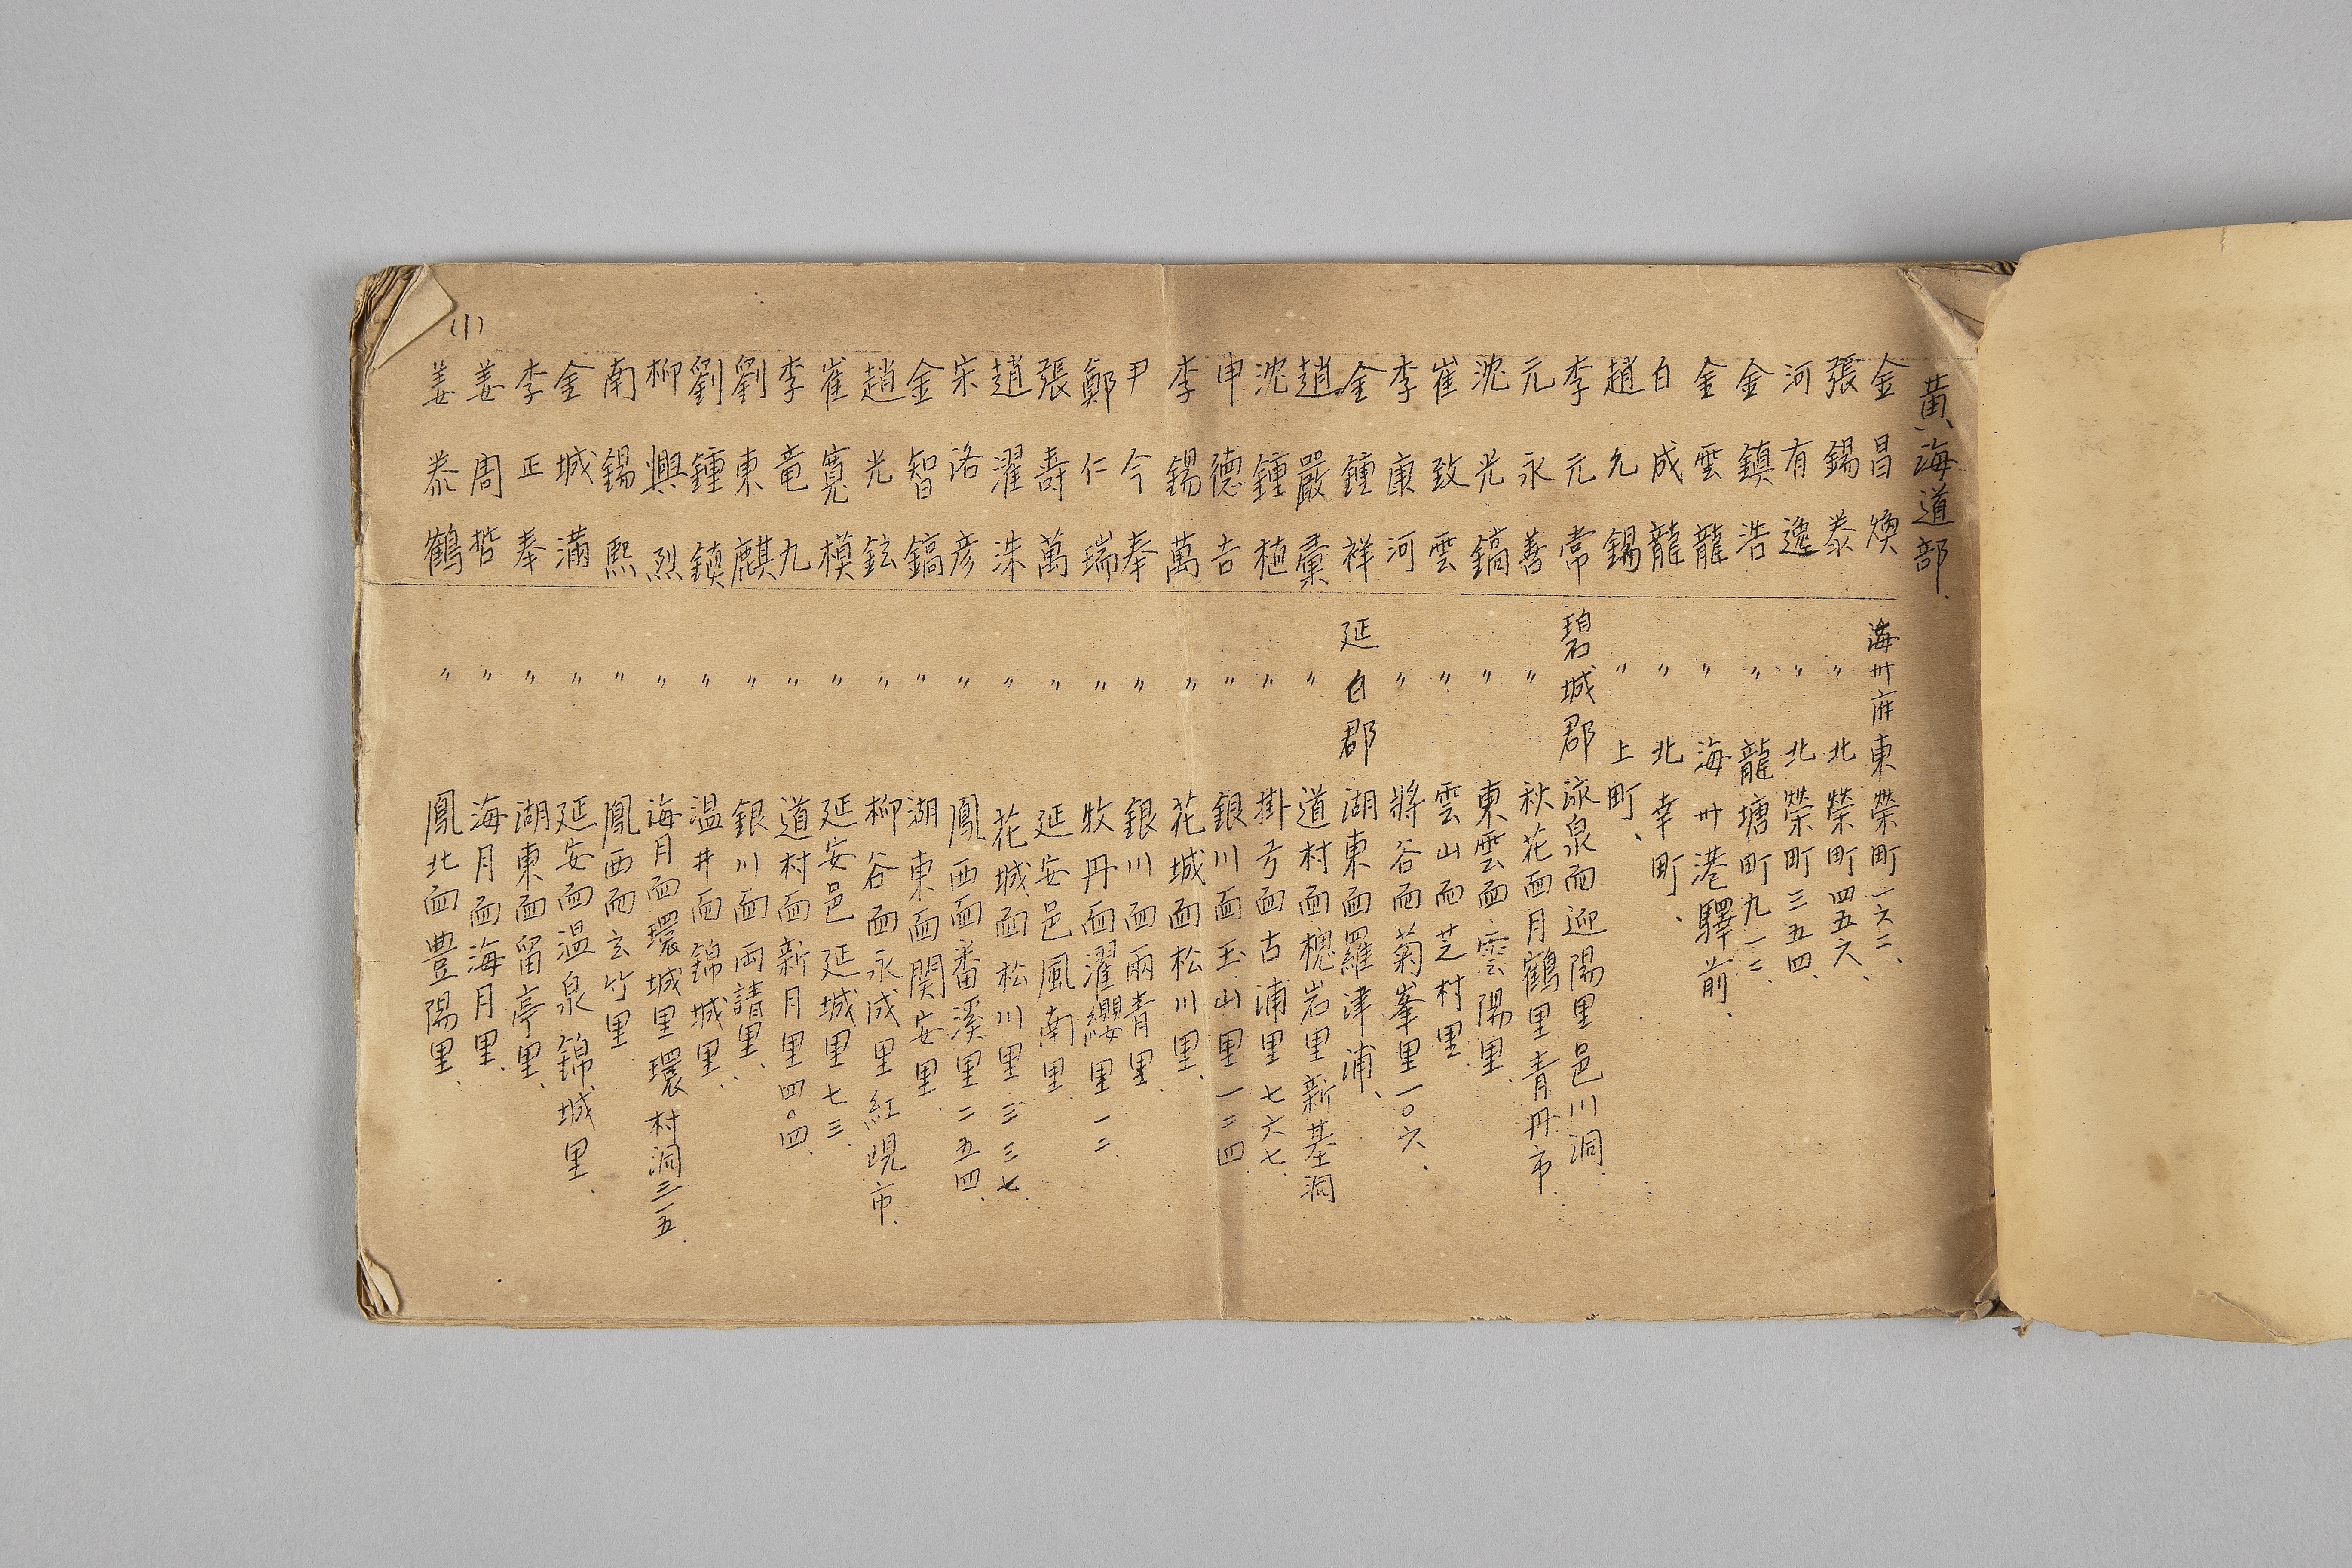 黃海道部.
金昌煥 海州府東榮町一六二、
張錫泰 〃 北榮町四五六、
河有逸 〃 北榮町三五四、
金鎮浩 〃 龍塘町九一二、
金雲龍 〃 海州港驛前.
白成龍 〃 北幸町、
趙允錫 〃 上町、
李元常 碧城郡 泳泉面迎陽里邑川洞.
元永善 〃 秋花面月鶴里青丹市.
沈光鎬 〃 東雲面雲陽里.
崔致雲 〃 雲山面芝村里
李康河 〃 將谷面菊峯里一〇六.
金鍾祥 延白郡 湖東面羅津浦、
趙嚴稾 〃 道村面槐岩里新基洞
沈鍾植 〃 掛弓面古浦里七六七.
申德吉 〃 銀川面玉山里一二四.
李錫萬 〃 花城面松川里.
尹今奉 〃 銀川面兩青里.
鄭仁瑞 〃 牧丹面濯纓里一二.
張壽萬 〃 延安邑風南里.
趙濯洙 〃 花城面松川里三三七.
宋洛彦 〃 鳳西面番溪里二五四.
金智鎬 〃 湖東面関安里.
趙光鉉 〃 柳谷面永成里紅峴市.
崔寬模 〃 延安邑延城里七三.
李竜九 〃 道村面新月里四〇四.
劉東麒 〃 銀川面両請里.
劉鍾鎮 〃 温井面錦城里.
柳興烈 〃 海月面環城里環村洞三一五.
南錫熙 〃 鳳西面玄竹里.
金城滿 〃 延安面温泉錦城里.
李正奉 〃 湖東面留亭里.
姜周哲 〃 海月面海月里.
姜泰鶴 〃 鳳北面豊陽里.
(1)